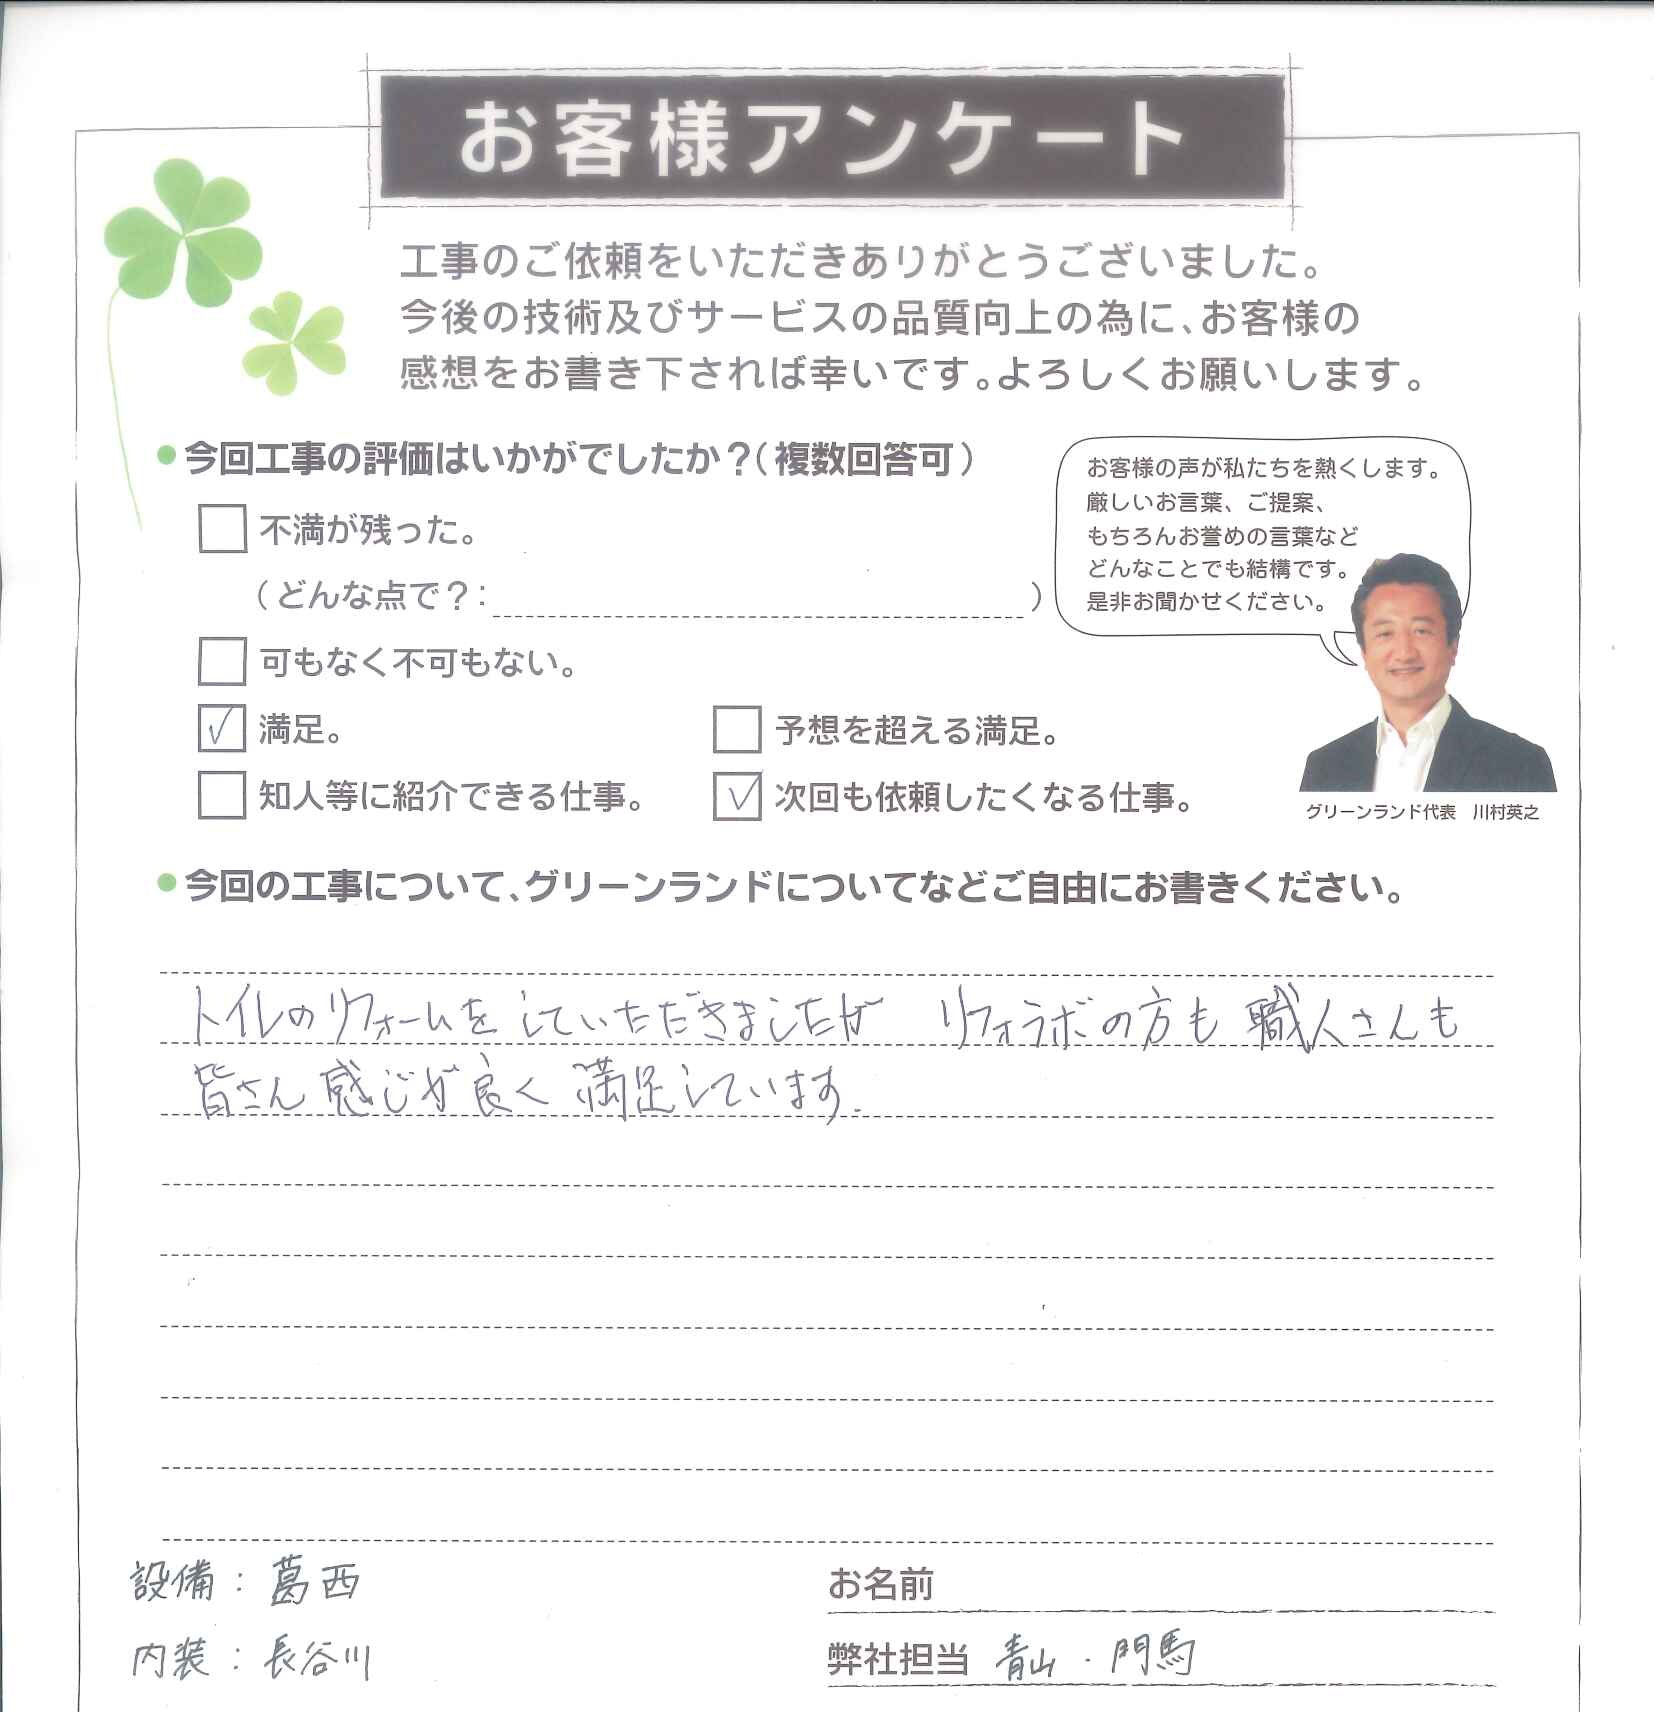 お客様アンケート
工事のご依頼をいただきありがとうございました。
今後の技術及びサービスの品質向上の為に、お客様の
感想をお書き下されば幸いです。よろしくお願いします。
今回工事の評価はいかがでしたか？（複数回答可）
不満が残った。
（どんな点で？： ）
可もなく不可もない。
満足。
予想を超える満足。
知人等に紹介できる仕事。
次回も依頼したくなる仕事。
お客様の声が私たちを熱くします。
厳しいお言葉、ご提案、
もちろんお誉めの言葉など
どんなことでも結構です。
是非お聞かせください。
グリーンランド代表　川村英之
今回の工事について、グリーンランドについてなどご自由にお書きください。
トイレのリフォームをしていただきましたが　リフォラボの方も職人さんも
皆さん感じが良く満足しています.
設備：葛西
内装：長谷川
お名前
弊社担当 青山・門馬